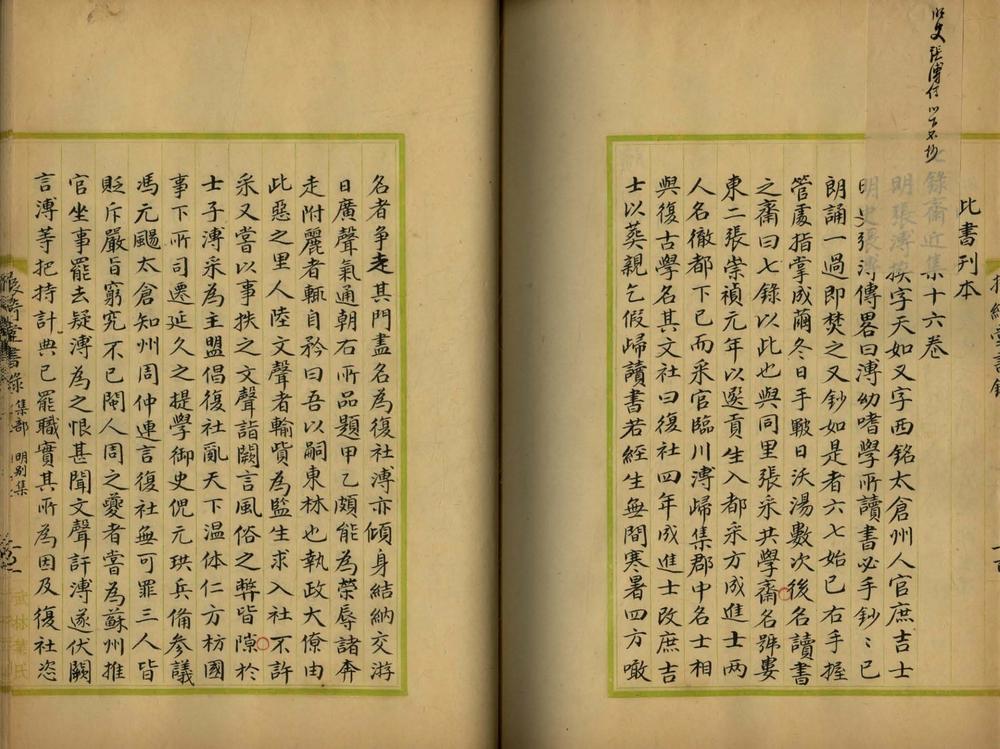 明史張溥传以下不抄
此書刊本
七録齋近集十六卷
明張溥撰字天如又字西銘太倉州人官庶吉士
明史張溥傳畧曰溥幼嗜學所讀書必手鈔〻已
朗誦一過即焚之又鈔如是者六七始已右手握
管處指掌成繭冬日手皸日沃湯數次後名讀書
之齋曰七錄以此也與同里張采共學齋名號婁
東二張崇禎元年以選貢生入都采方成進士兩
人名徹都下已而采官臨川溥歸集郡中名士相
與復古學名其文社曰復社四年成進士改庶吉
士以葬親乞假歸讀書若經生無間寒暑四方噉
名者争走其門盡名為復社溥亦傾身結納交游
日廣聲氣通朝右所品題甲乙頗能為榮辱諸奔
走附麗者輒自矜曰吾以嗣東林也執政大僚由
此惡之里人陸文聲者輸貲為監生求入社不許
采又嘗以事抶之文聲詣闕言風俗之弊皆隙於
士子溥采為主盟倡復社亂天下温体仁方枋國
事下所司遷延久之提學御史倪元珙兵備參議
馮元颺太倉知州周仲連言復社無可罪三人皆
貶斥嚴旨窮究不已閩人周之夔者嘗為蘇州推
官坐事罷去疑溥為之恨甚聞文聲訐溥遂伏闕
言溥等把持計典已罷職實其所為因及復社恣
集部 明别集
武林葉氏